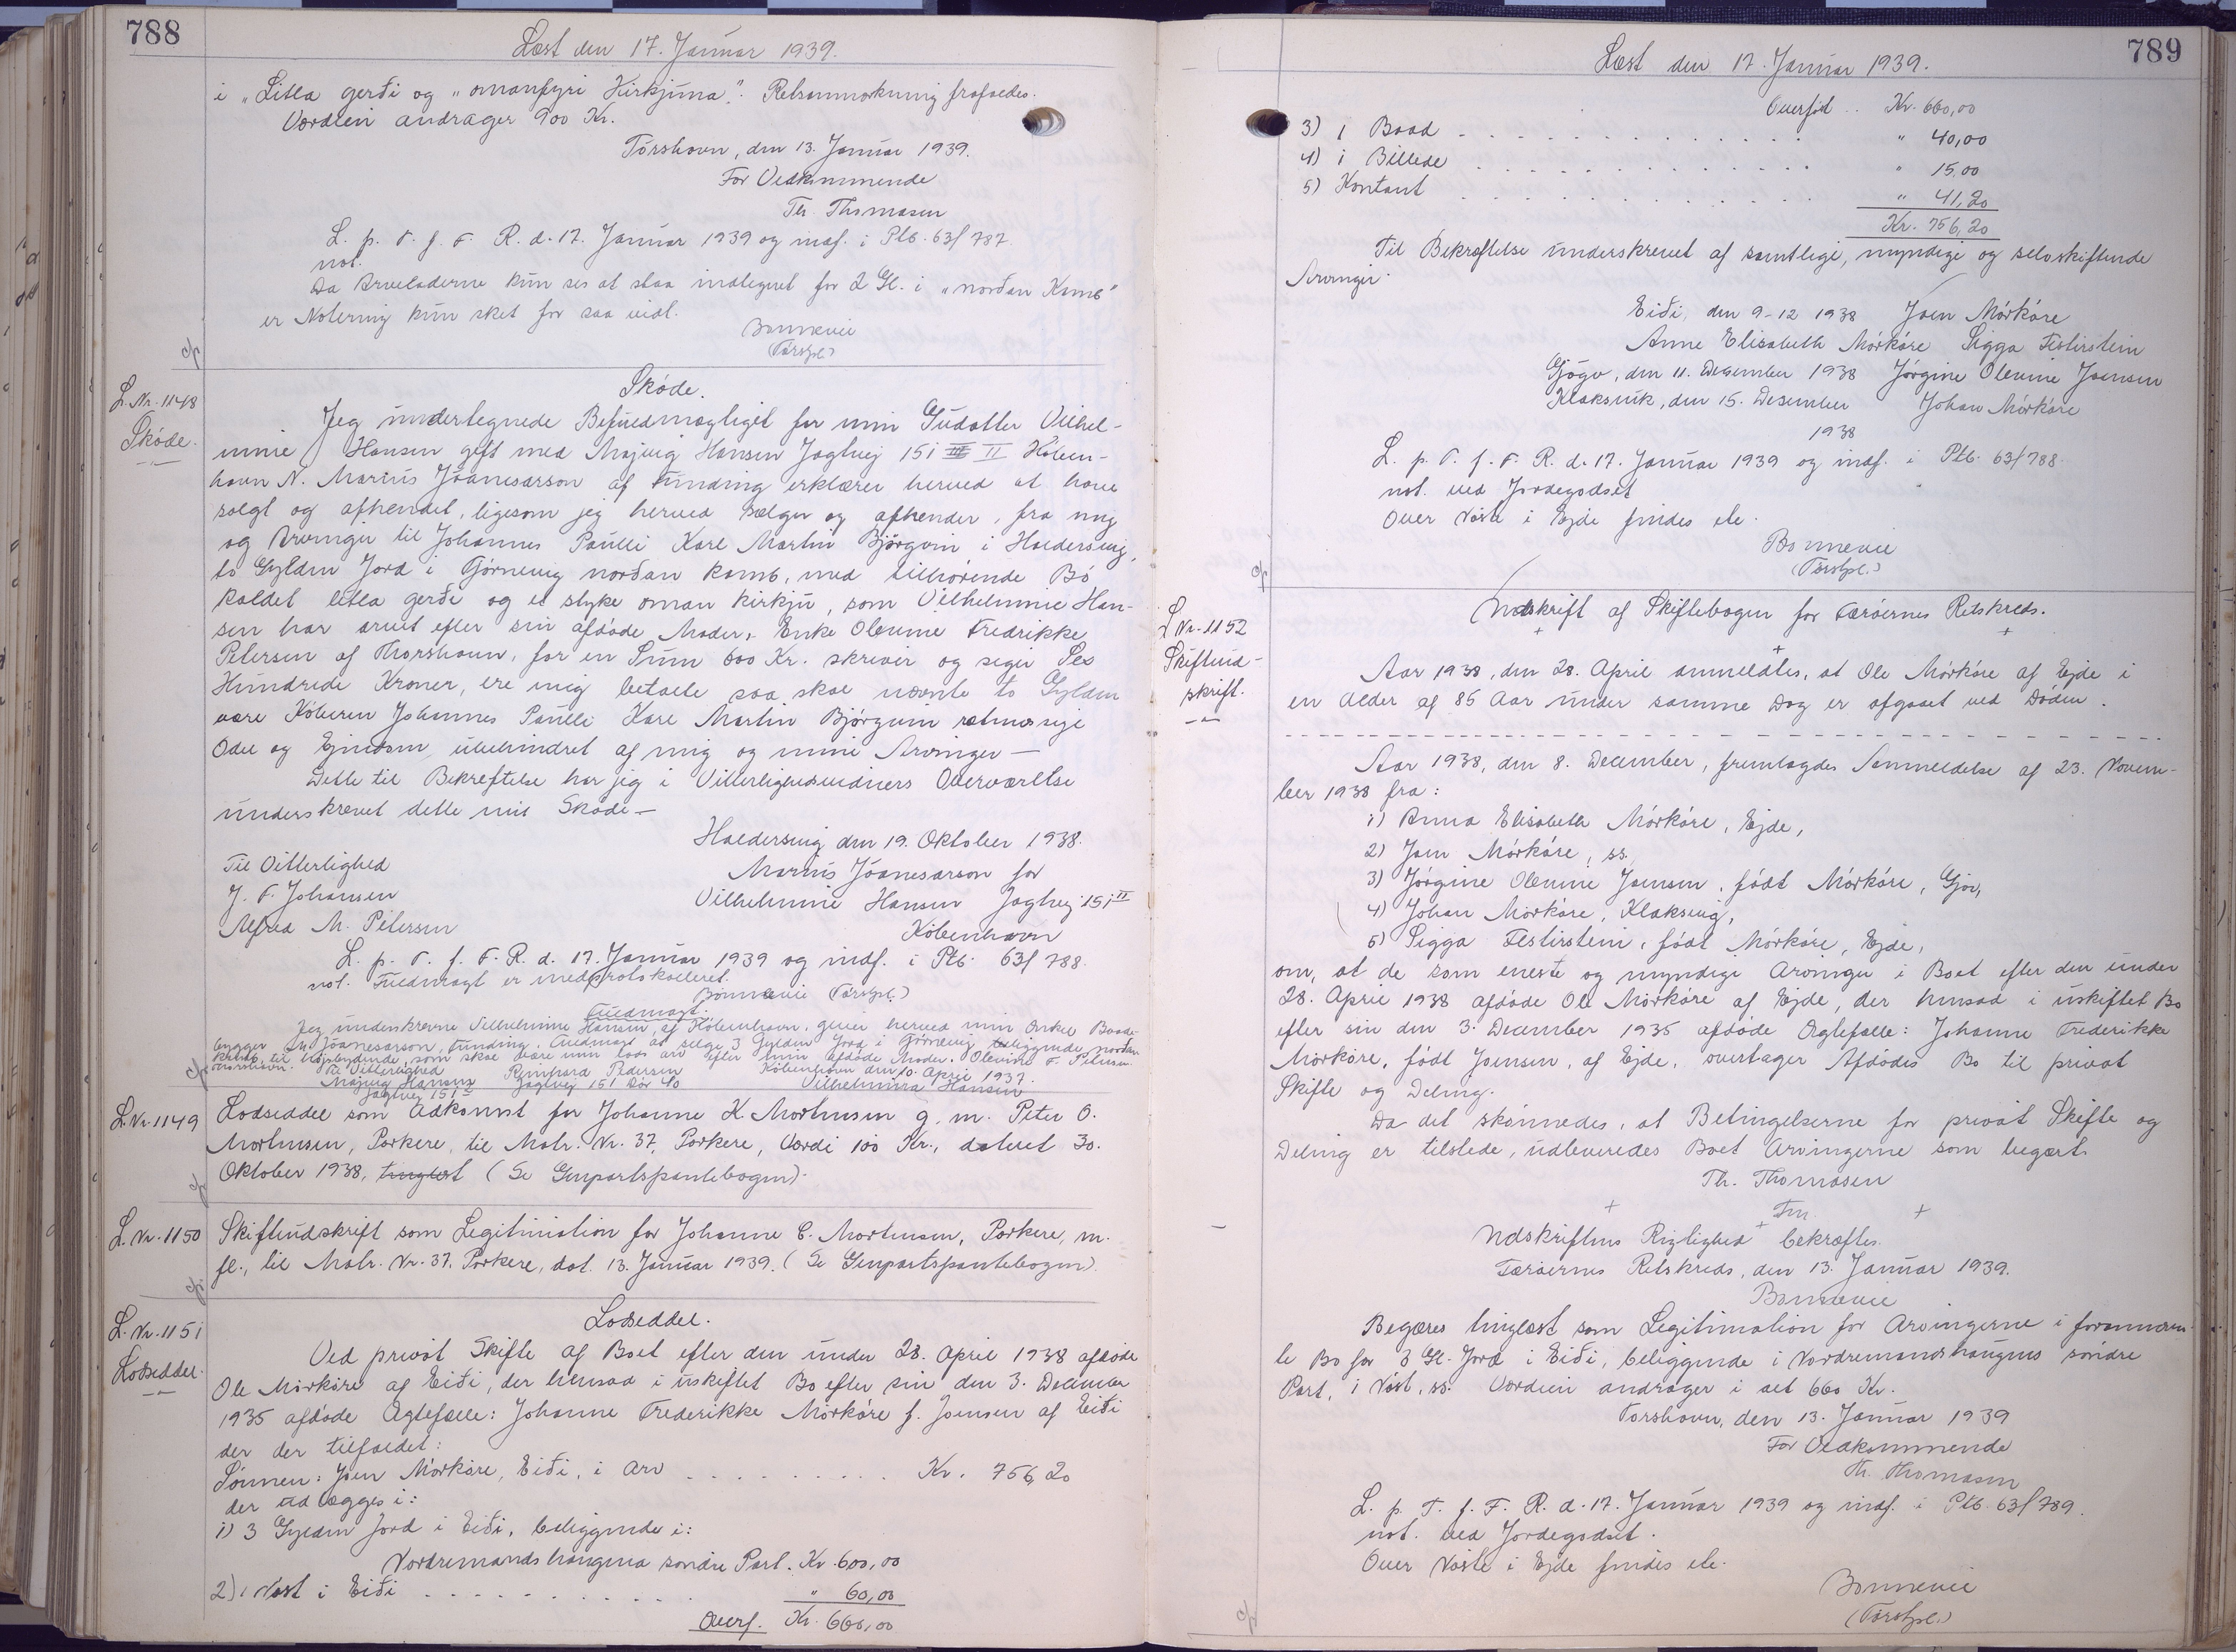 788
Læst den 17. Januar 1939.
i "Litla gerði og "omanfyri Kirkjuna". Retsanmærkning frafaldes.
Værdien andrager 900 Kr.
Tórshavn, den 13. Januar 1939.
For Vedkommende
Th. Thomasen
L. p. T. f. F. R. d. 17. Januar 1939 og indf. i Ptb. 63/787.
not.
Da Arveladerne kun ses at staa indtegnet for 2 Gl. i "norðan Kamb"
er Notering kun sket for saa vidt.
Bonnevie
L. Nr. 1148
Skøde.
Skøde.
Jeg undertegnede Befuldmægtiget for min Guddatter Vilhel-
mine Hansen gift med Majvig Hansen Jagtvej 151 II Køben-
havn N. Marius Jóanesarson af Funding erklærer herved at have
solgt og afhendet, ligesom jeg herved sælger og afhender, fra mig
og Arvinger til Johannes Paulli Karl Martin Bjørgvin i Haldersvig,
to Gylden Jord i Tjørnevig norðan kamb, med tilhørende Bø
kaldet litla gerði og et styke oman kirkju, som Vilhelmine Han-
sen har arvet efter sin afdøde Moder, Enke Olevine Fredrikke
Petersen af Thorshavn, for en Sum 600 Kr. skriver og siger Sex
Hundrede Kroner, ere mig betalte saa skal nævnte to Gylden
være Køberen Johannes Paulli Karl Martin Bjørgvin retmæssige
Odel og Ejendom, ubehindret af mig og mine Arvinger —
Dette til Bekreftelse har jeg i Vitterlighedsvidners Overværelse
underskrevet dette mit Skøde —
Haldersvig den 19. Oktober 1938.
Til Vitterlighed
Marius Jóanesarson for
J. F. Johansen
Vilhelmine Hansen Jagtvej 151 II
Alfred M. Petersen
København
L. p. T. f. F. R. d. 17. Januar 1939 og indf. i Ptb. 63/788.
not. Fuldmagt er medprotokolleret.
Bonnevie
Fuldmagt.
Jeg underskrevne Vilhelmine Hansen, af København, giver herved min Onkel Baade-
bygger M. Jóanesarson, Funding, Fuldmagt at sælge 3 Gylden Jord i Tjørnevig beliggende norðan
kamb, til højstbydende, som skal være min lods arv efter min afdøde Moder. Olevine F. Petersen
Thorshavn.
København den 10. April 1937.
Til Vitterlighed
Vilhelmina Hansen
Majvig Hansen
Jagtvej 151
L. Nr. 1149
Lodseddel som Adkomst for Johanne K. Mortensen g. m. Peter O.
Mortensen, Porkere, til Matr. Nr. 37, Porkere, Værdi 100 Kr., dateret 30.
Oktober 1938, tinglæst (Se Genpartspantebogen).
L. Nr. 1150
Skifteudskrift som Legitimation for Johanne C. Mortensen, Porkere, m.
fl., til Matr. Nr. 37, Porkere, dat. 13. Januar 1939. (Se Genpartspantebogen).
L. Nr. 1151
Lodseddel.
Lodseddel.
Ved privat Skifte af Boet efter den under 28. April 1938 afdøde
Ole Mørkøre af Eiði, der hensad i uskiftet Bo efter sin den 3. December
1935 afdøde Ægtefælle: Johanne Frederikke Mørkøre f. Joensen af Eiði
der der tilfaldet:
Sønnen: Joen Mørkøre, Eiði, i Arv . . . . . . . . Kr. 756,20
der udlægges i:
1) 3 Gylden Jord i Eiði, beliggende i:
Nordremandshaugma søndre Part. Kr. 600,00
2) 1 Nøst i Eiði . . . . . . . . . " 60,00
Overf. Kr. 660,00
789
Læst den 17. Januar 1939.
Overført .. Kr. 660,00
3) 1 Baad . . . . . . . . . . . " 40,00
4) 1 Billede . . . . . . . . . . " 15,00
5) Kontant . . . . . . . . . . " 41,20
Kr. 756,20
Til Bekræftelse underskrevet af samtlige, myndige og selvskiftende
Arvinger.
Eiði, den 9-12 1938 Joen Mørkøre
Anne Elisabeth Mørkøre Sigga Festirstein
Gjógv, den 11. December 1938 Jørgine Olevine Joensen
Klaksvik, den 15. Desember Johan Mørkøre
1938
L. p. T. f. F. R. d. 17. Januar 1939 og indf. i Ptb. 63/788.
not. ved Jordegodset
Over Nøste i Ejde findes ele.
Bonnevie
L. Nr. 1152
Skifteud-
skrift.
Udskrift af Skiftebogen for Færøernes Retskreds.
Aar 1938, den 28. April anmeldtes, at Ole Mørkøre af Ejde i
en Alder af 85 Aar under samme Dag er afgaaet ved Døden.
Aar 1938, den 8. December, fremlagdes Anmeldelse af 23. Novem-
ber 1938 fra:
1) Anna Elisabeth Mørkøre, Ejde,
2) Joen Mørkøre, ss.
3) Jørgine Olevine Joensen, født Mørkøre, Gjov,
4) Johan Mørkøre, Klaksvig,
5) Sigga Festirstein, født Mørkøre, Ejde,
om, at de som eneste og myndige Arvinger i Boet efter den under
28. April 1938 afdøde Ole Mørkøre af Ejde, der hensad i uskiftet Bo
efter sin den 3. December 1935 afdøde Ægtefælle: Johanne Frederikke
Mørkøre, født Joensen, af Ejde, overtager Afdødes Bo til privat
Skifte og Deling.
Da det skønnedes, at Betingelserne for privat Skifte og
Deling er tilstede, udleveredes Boet Arvingerne som begært.
Th. Thomasen
Fm.
Udskriftens Rigtighed bekræftes.
Færøernes Retskreds, den 13. Januar 1939.
Bonnevie
Begæres tinglæst som Legitimation for Arvingerne i forannævn-
te Bo for 3 Gl. Jord i Eiði, beliggende i Nordremandshaugens søndre
Part, 1 Nøst, ss. Værdien andrager i alt 660 Kr.
Torshavn, den 13. Januar 1939
For Vedkommende
Th. Thomasen
L. p. T. f. F. R. d. 17. Januar 1939 og indf. i Ptb. 63/789.
not. ved Jordegodset.
Over Nøste i Ejde findes ele.
Bonnevie